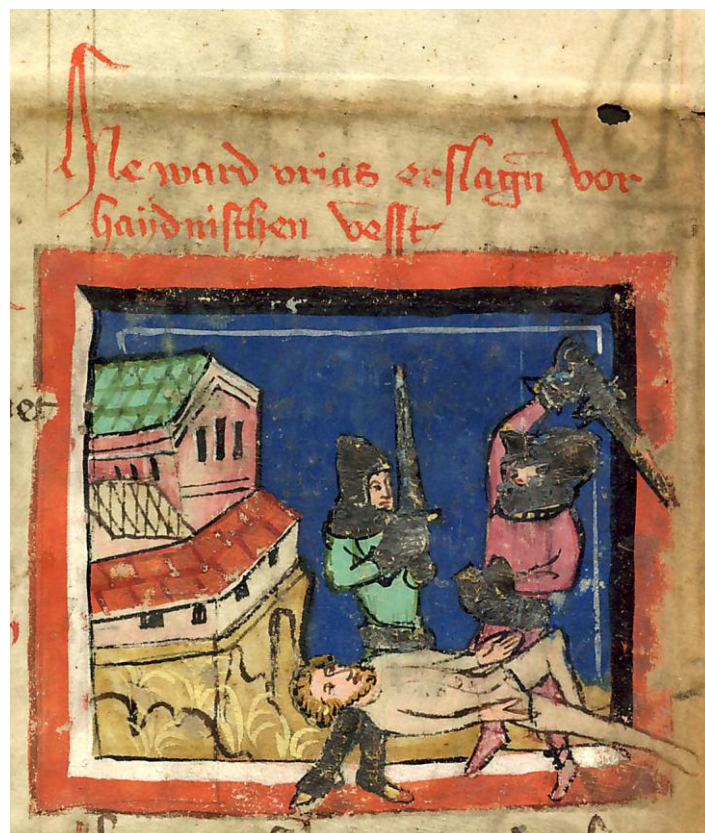 Hie ward vrias erslagn̄ vor
haÿdnischen vesst